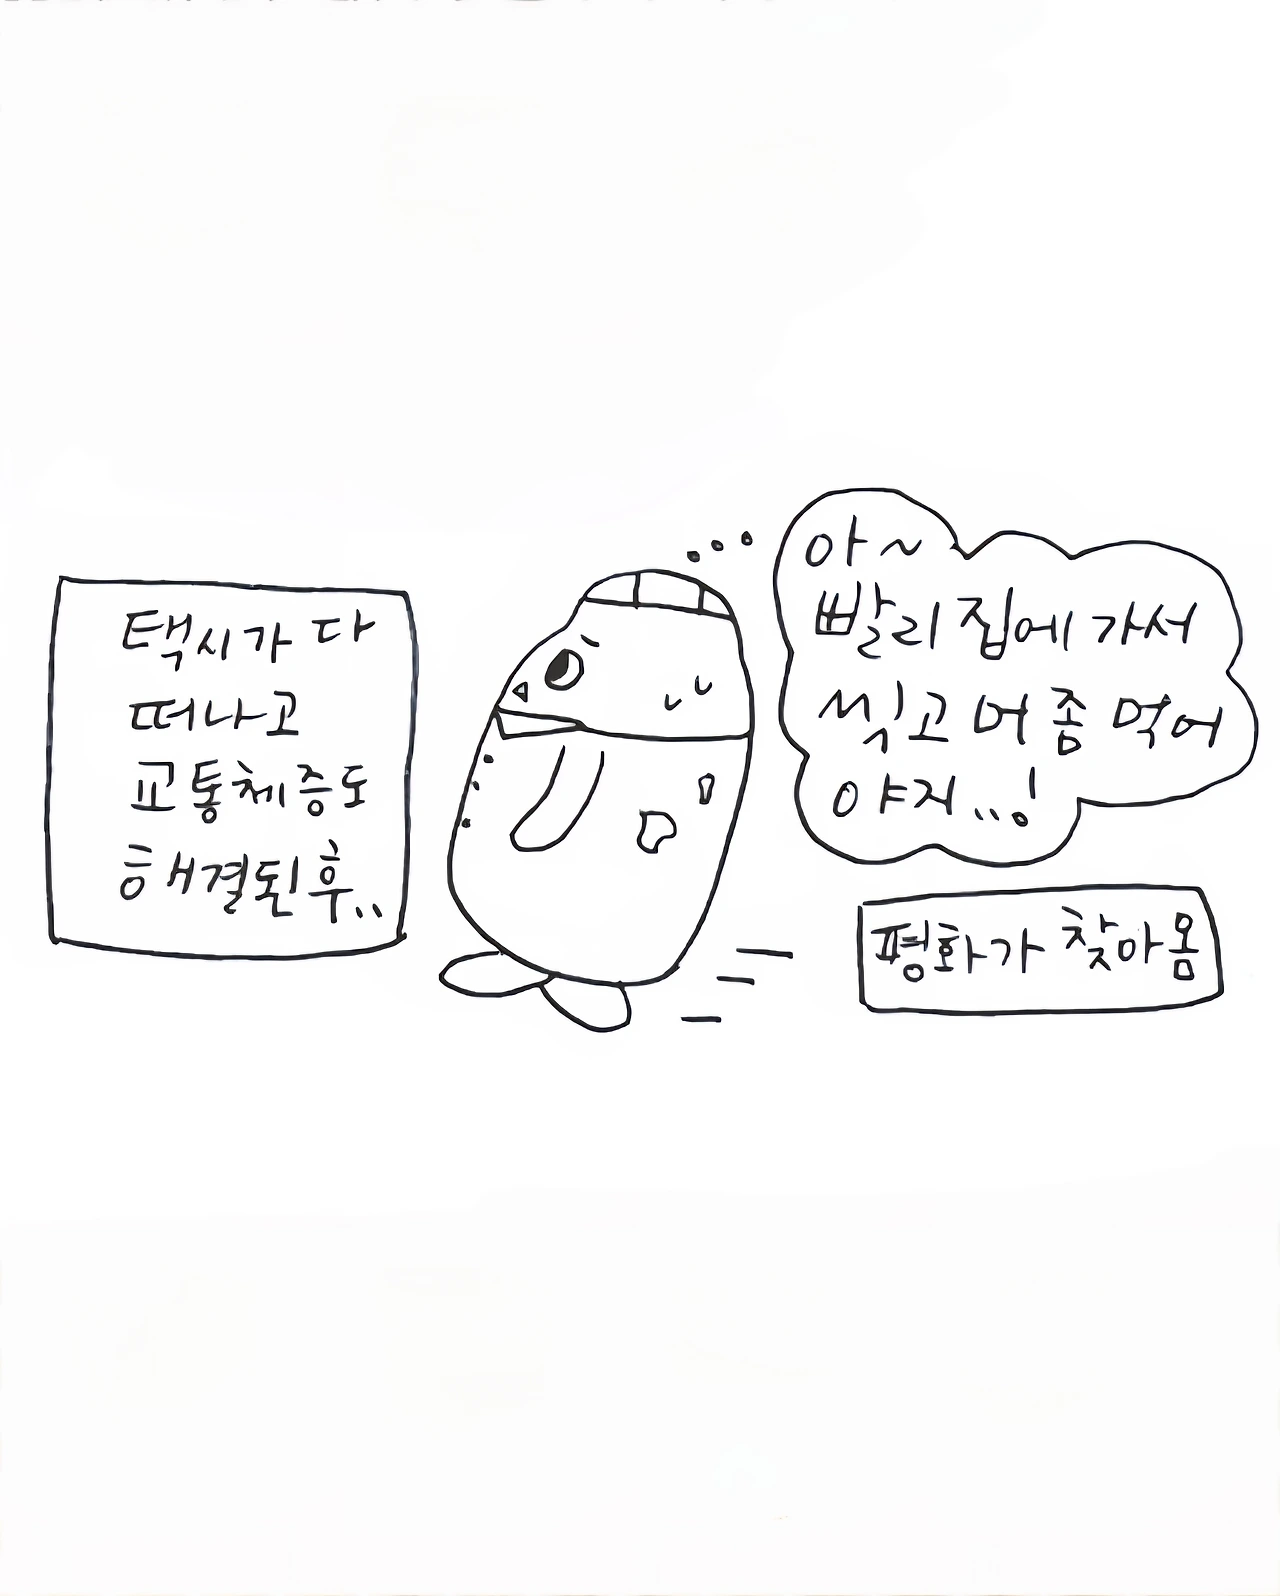 택시가 다
떠나고
교통체증도
해결된 후..
아~
빨리 집에 가서
씩고 머 좀 먹어
야지..!
평화가 찾아옴